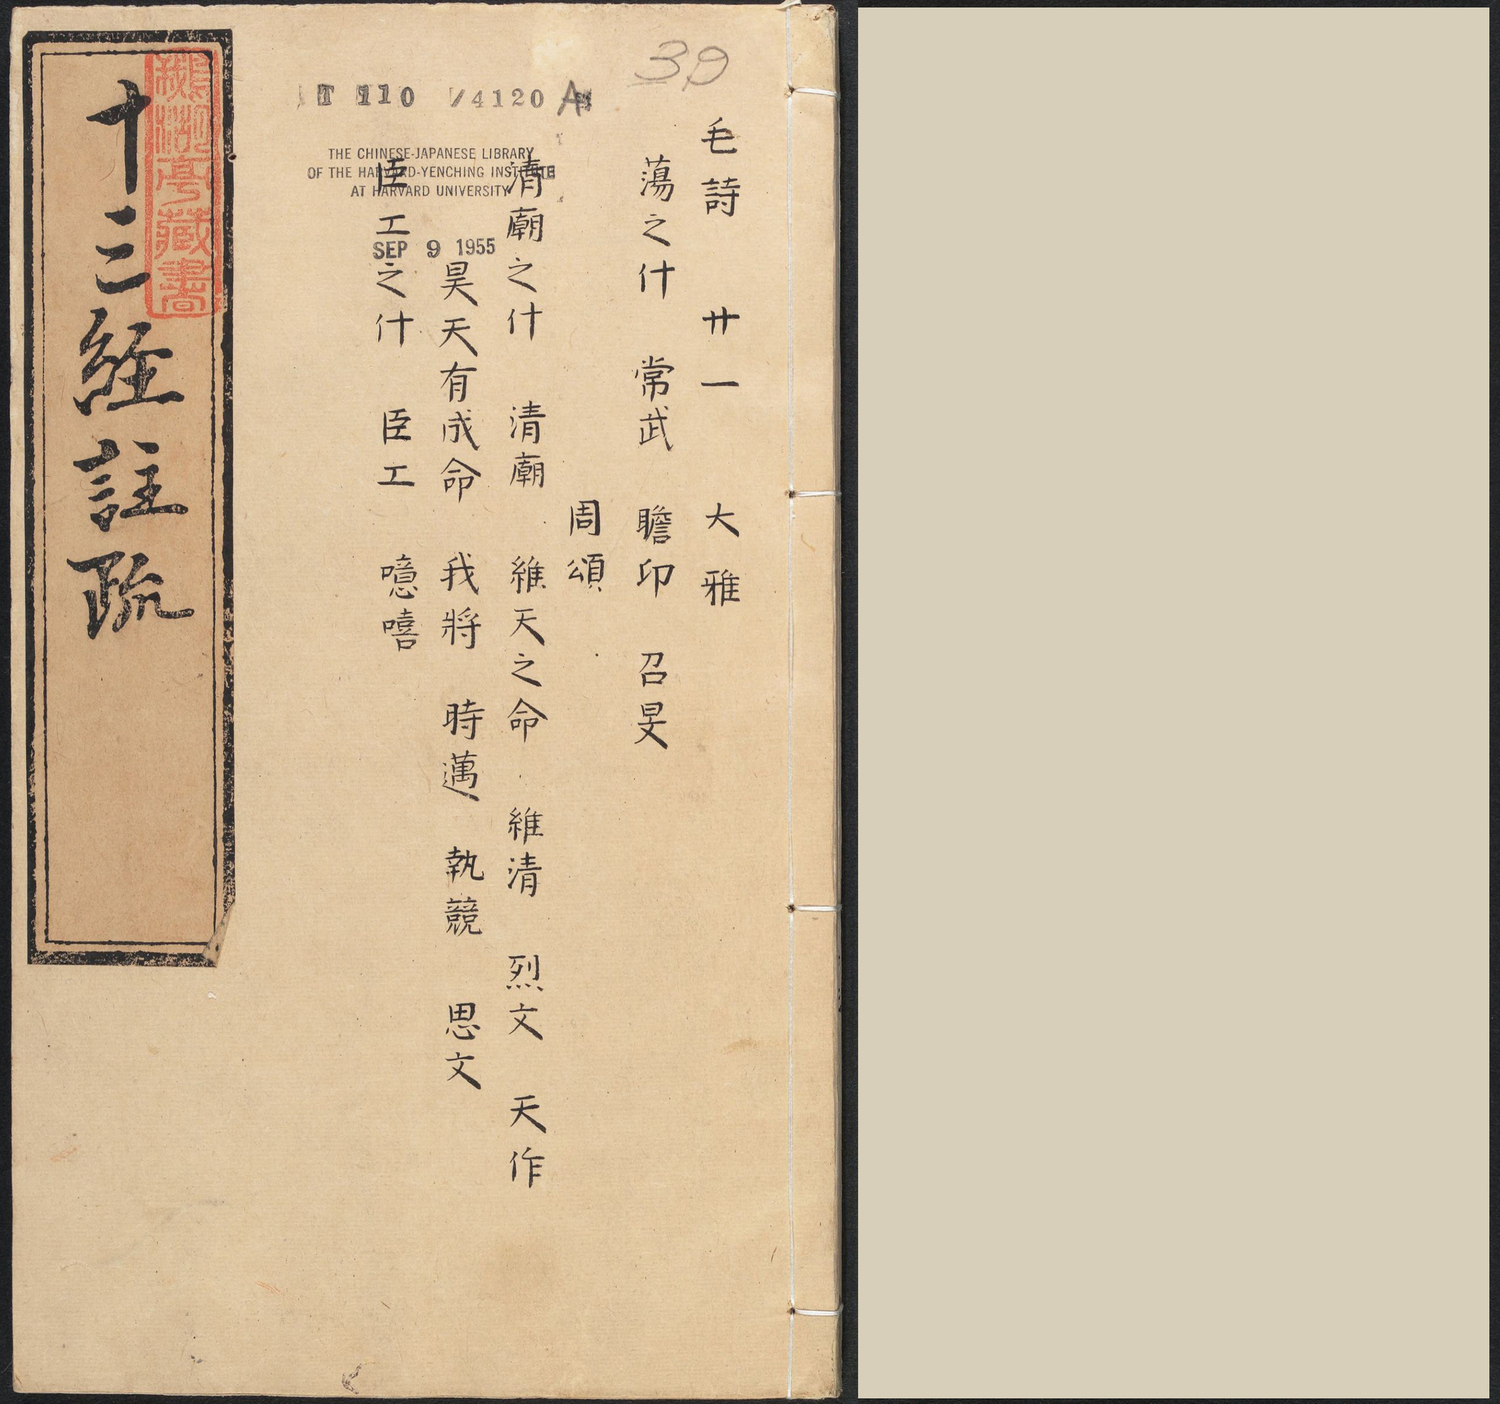 39
T 110 /4120 A
THE CHINESE-JAPANESE LIBRARY
OF THE HARVARD-YENCHING INSTITUTE
AT HARVARD UNIVERSITY
SEP 9 1955
毛詩 廿一 大雅
蕩之什 常武 瞻卬 召旻
周頌
清廟之什 清廟 維天之命 維清 烈文 天作
昊天有成命 我將 時邁 執競 思文
臣工之什 臣工 噫嘻
十三經註疏
亭藏書